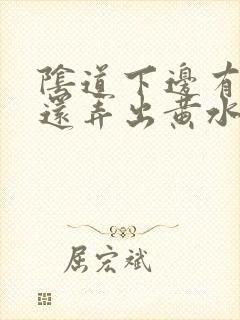 陰道下邊有
還弄出黃水
屈宏斌